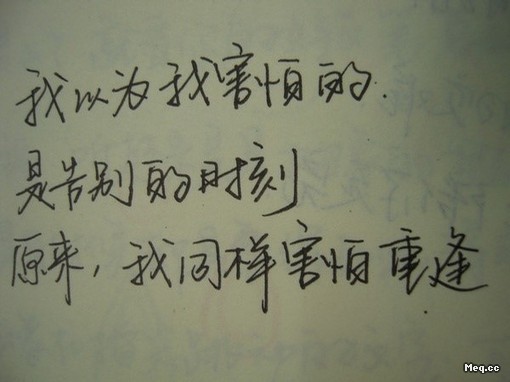 我以为我害怕的.
是告别的时刻
原来，我同样害怕重逢
Meq.cc